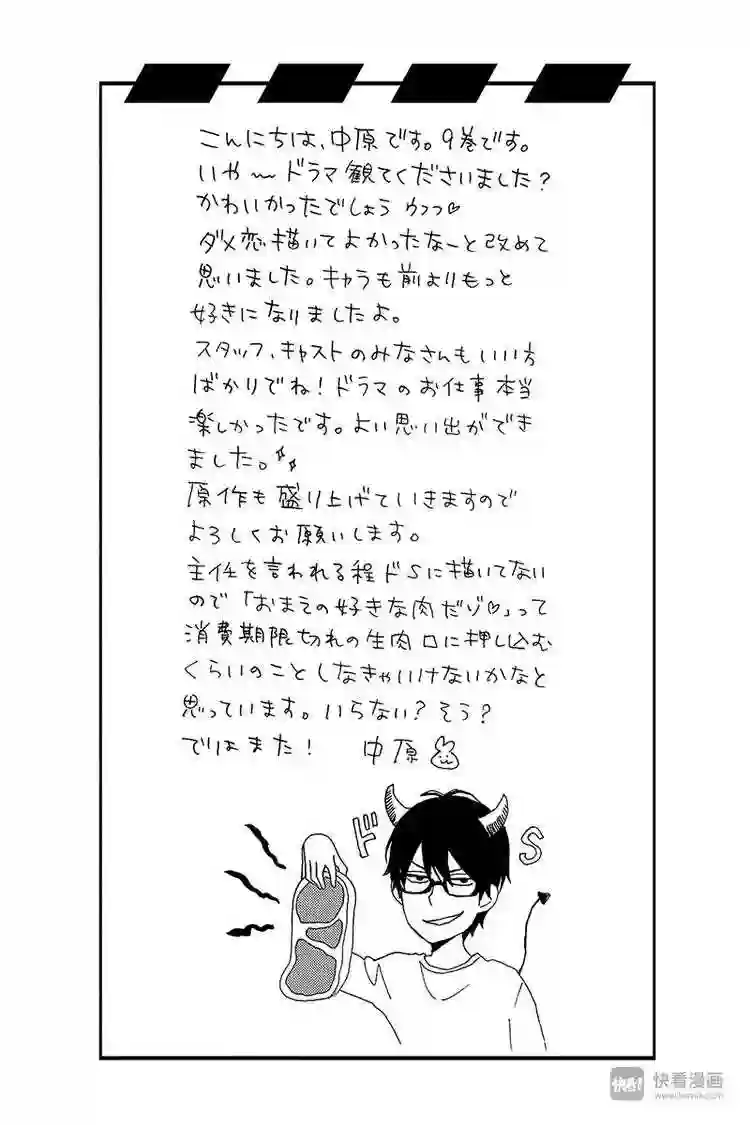 こんにちは、中原です。9巻です。
いや〜ドラマ観てくださいました?
かわいかったでしょう ウフフ♡
ダメ恋描いてよかったなーと改めて
思いました。キャラも前よりもっと
好きになりましたよ。
スタッフ、キャストのみなさんもいい方
ばかりでね!ドラマのお仕事本当
楽しかったです。よい思い出ができ
ました。
原作も盛り上げていきますので
よろしくお願いします。
主任を言われる程ドSに描いてない
ので「おまえの好きな肉だゾ♡」って
消費期限切れの生肉口に押し込む
くらいのことしなきゃいけないかなと
思っています。いらない?そう?
ではまた! 中原
ド S
快看!
快看漫画